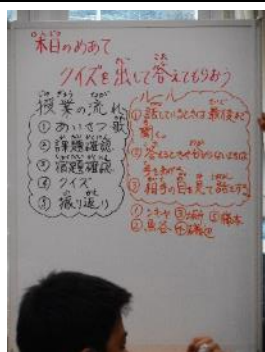 本日のめあて
クイズを出して答えてもらおう
授業の流れ
①あいさつ 歌
②課題確認
③宿題確認
④クイズ
⑤振り返り
ルール
①話しているときは最後まで
聞く。
②答えるときやわからないときは
手をあげる
③相手の目を見て話をする